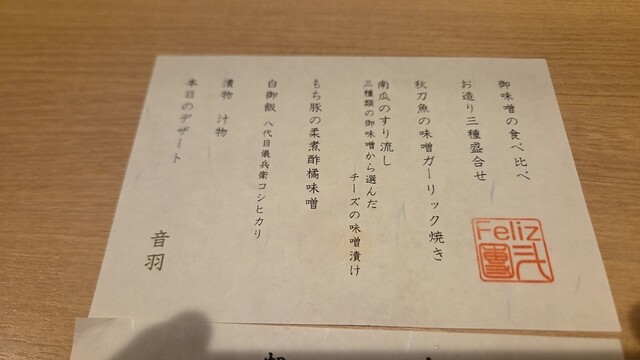 御味噌の食べ比べ
お造り三種盛合せ
秋刀魚の味噌ガーリック焼き
南瓜のすり流し
三種類の御味噌から選んだ
チーズの味噌漬け
もち豚の柔煮酢橘味噌
白御飯 八代目儀兵衛コシヒカリ
漬物 汁物
本日のデザート
音羽
Feliz